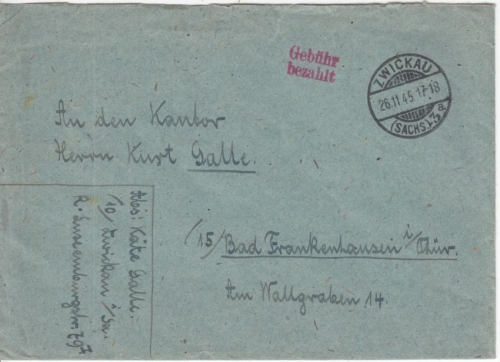 Gebühr
bezahlt
ZWICKAU
26.11.45.17-18
(SACHS.) 3 a
An den Kantor
Herrn Kurt Galle.
/15/ Bad Frankenhausen i/Thür.
Am Wallgraben 14.
Abs: Käthe Galle.
/10/ Zwickau i/Sa.
R. Luxemburgstr.